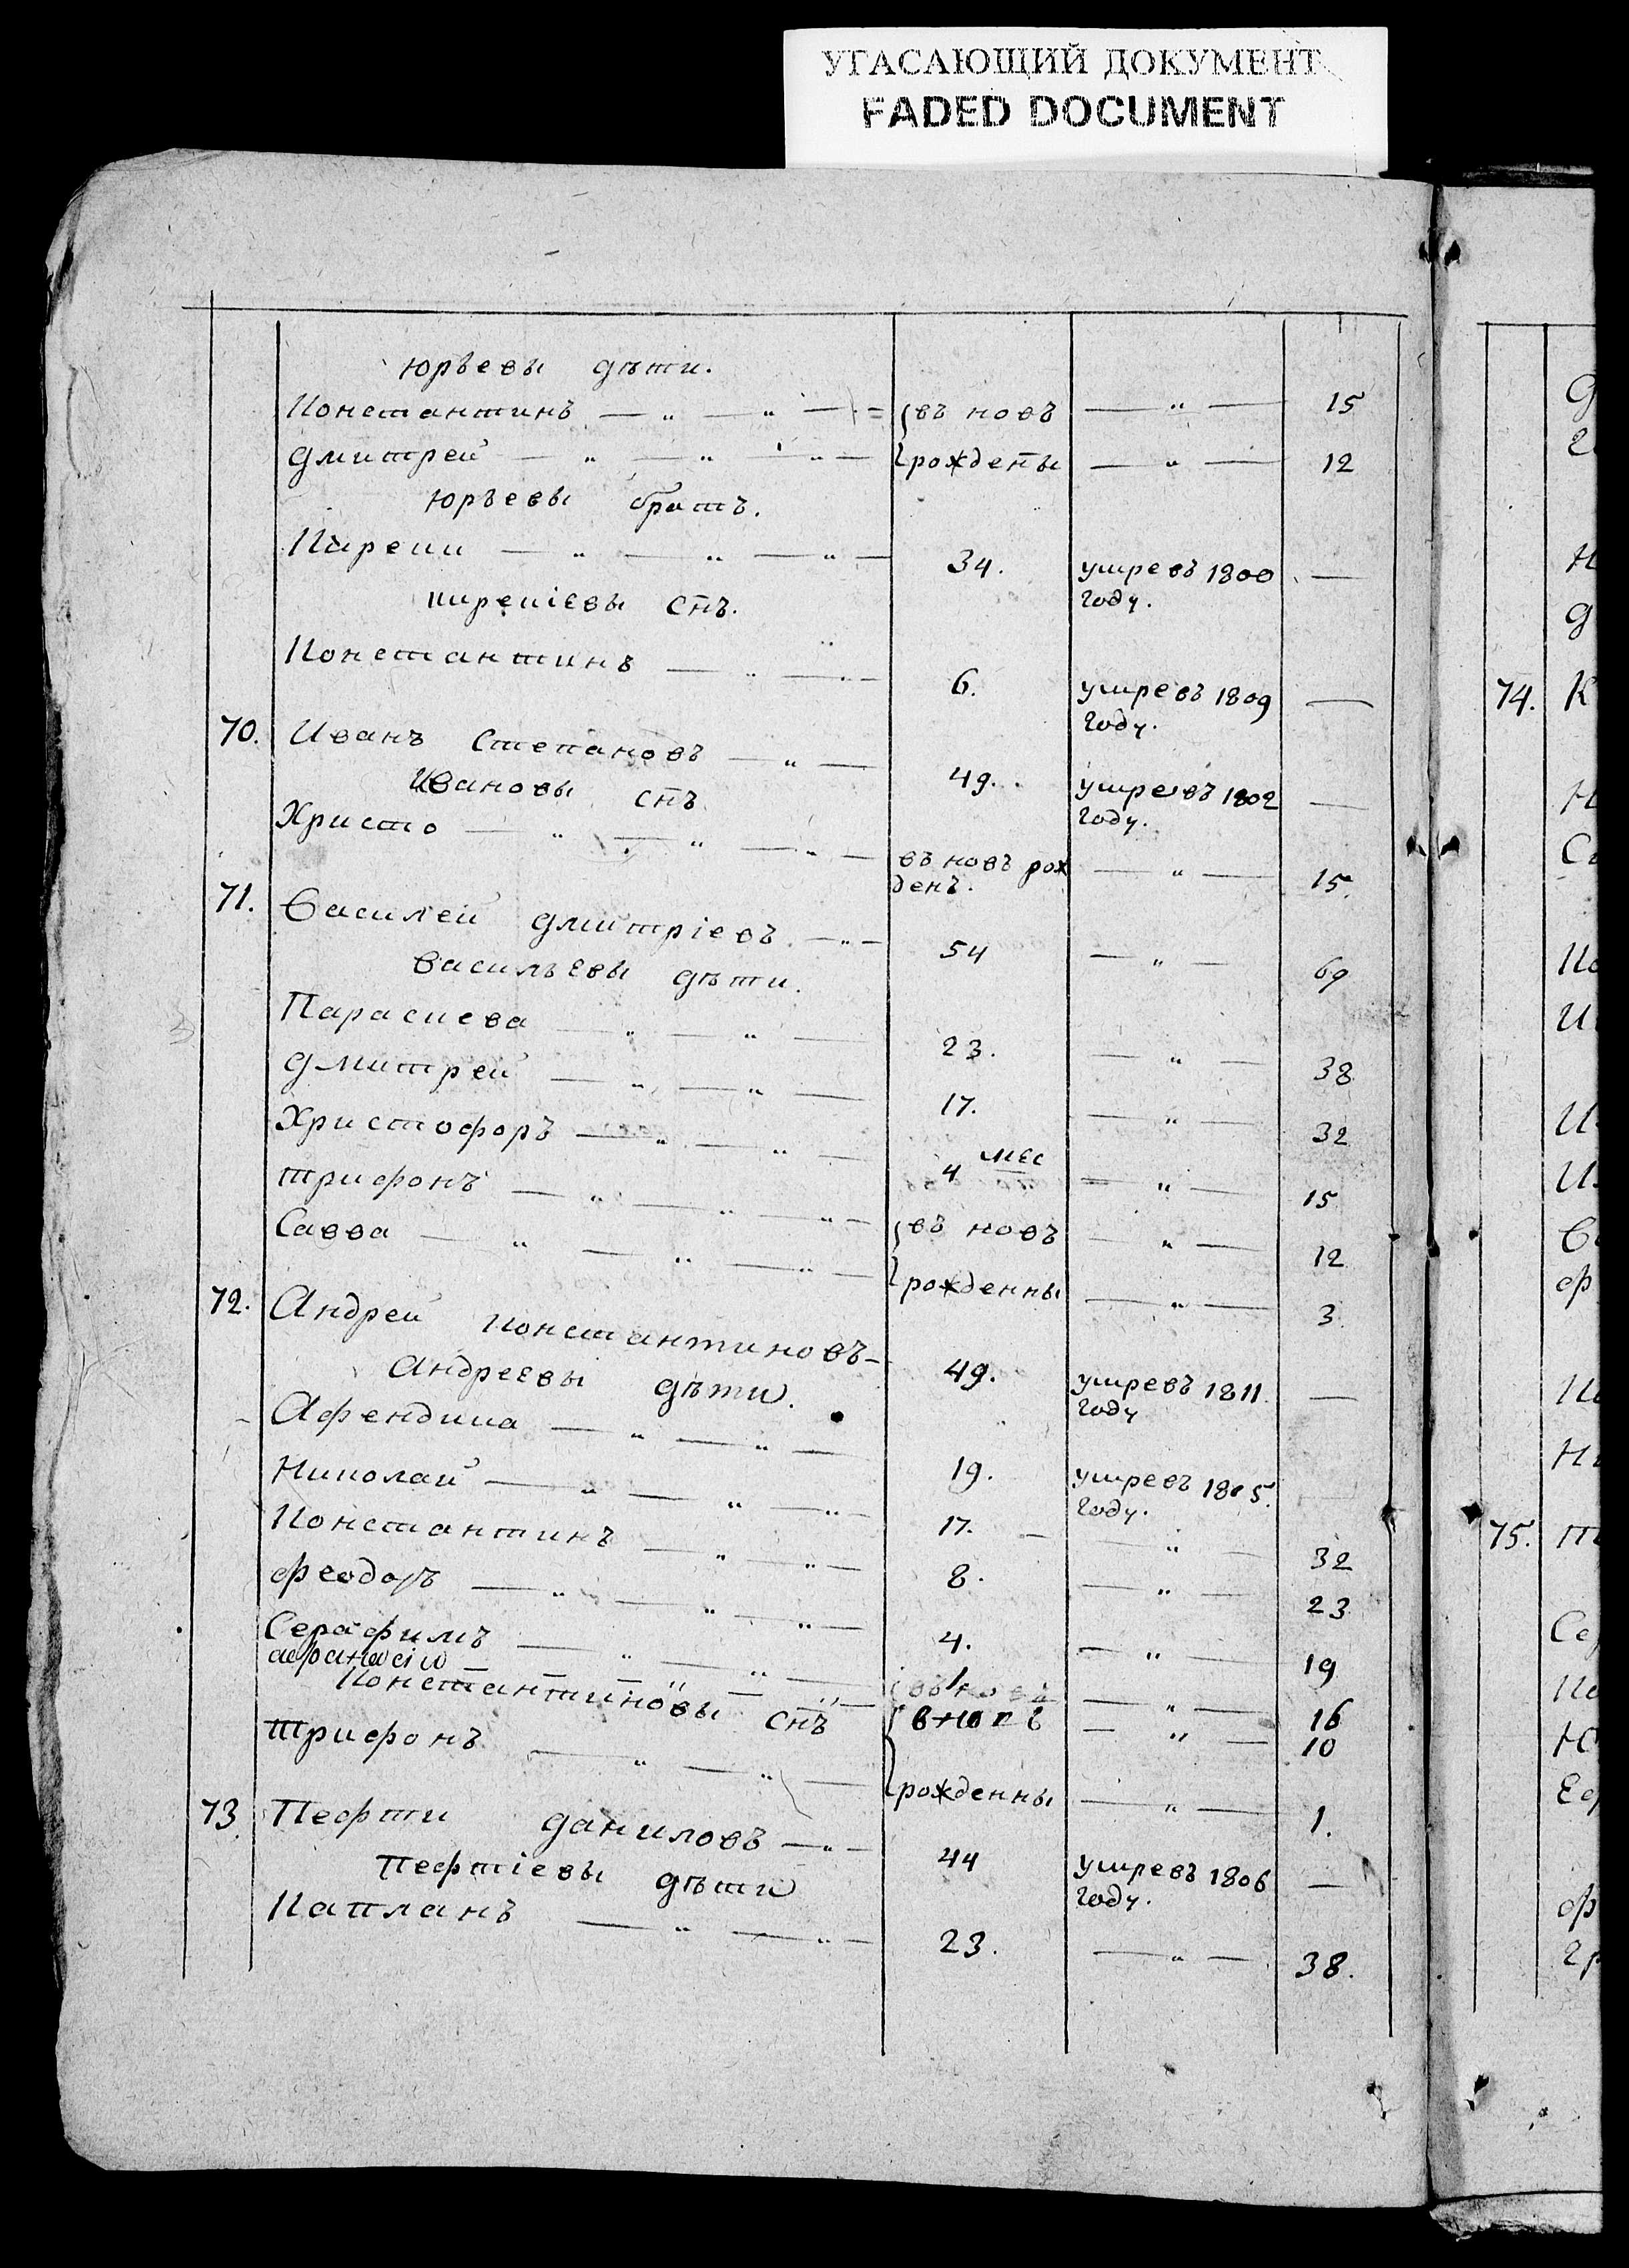 УГАСАЮЩИЙ ДОКУМЕНТ
FADED DOCUMENT
Юрьевы дѣти.
Константинъ — „ — „ — въ новъ — „ — 15
Дмитрей — „ — „ — „ — рождены — „ — 12
Юрьевы братъ.
Киреки — „ — „ — „ — 34. умре въ 1800 —
году.
кирекіевы снъ.
Константинъ — „ — „ — 6. умре въ 1809 —
году.
70. Иванъ Степановъ — „ — 49. умре въ 1802 —
году.
Ивановы снъ
Христо — „ — „ — „ — въ новъ рож — „ — 15.
денъ.
71. Василей Дмитріевъ — „ — 54 — „ — 69
Васильевы дѣти.
Параскева — „ — „ — 23. — „ — 38
Дмитрей — „ — „ — 17. — „ — 32
Христофоръ — „ — „ — 4 мес — „ — 15
Трифонъ — „ — „ — „ — въ новъ — „ — 12
Савва — „ — „ — „ — рожденны — „ — 3
72. Андрей Константиновъ — 49. умре въ 1811 —
году
Андреевы дѣти.
Афендика — „ — „ — 19. умре въ 1805. —
году.
Николай — „ — „ — „ — 17. — „ — 32
Константинъ — „ — „ — 8. — „ — 23
Феодоръ — „ — „ — „ — 4. — „ — 19
Серафимъ — „ — „ — — „ — 16
афанасій — „ — „ — вновъ — „ — 10
Константиновы снъ
Трифонъ — „ — „ — рожденны — „ — 1.
73. Пефти Даниловъ — „ — 44 умре въ 1806 —
году.
Пефтіевы дѣти
Капланъ — „ — „ — 23. — „ — 38.
74. К
75.